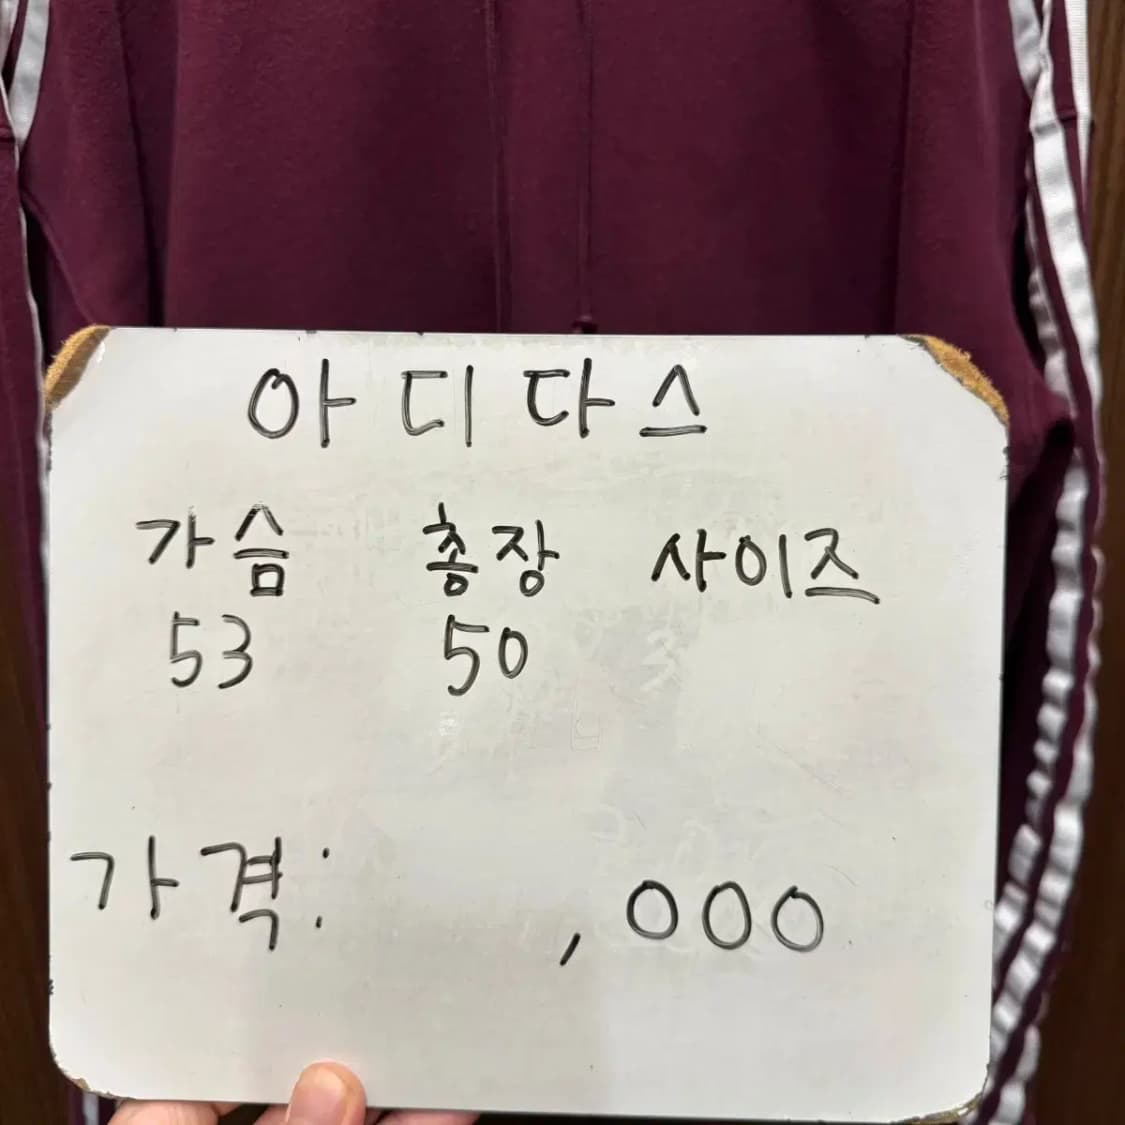 아디다스
가슴 총장 사이즈
53 50
가격: ,000